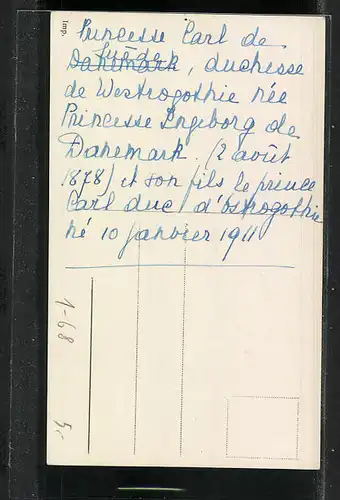 Imp.
Princesse Carl de
Suède
Danemark, duchesse
de Westrogothie née
Princesse Ingeborg de
Danemark (2 août
1878) et son fils le prince
Carl duc d'Ostrogothie
né 10 janvier 1911
1-68
5.-